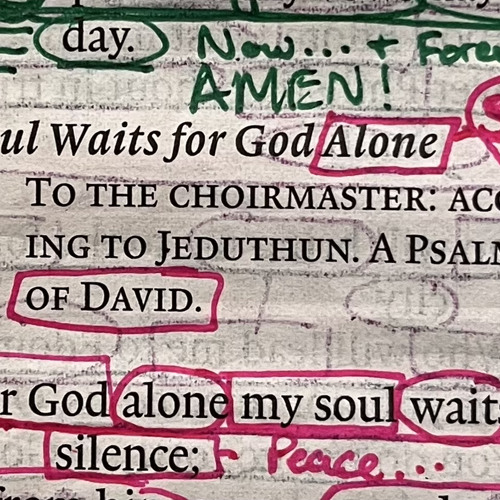 day. Now... + Fore
AMEN!
ul Waits for God Alone
TO THE CHOIRMASTER: ACC
ING TO JEDUTHUN. A PSALM
OF DAVID.
r God alone my soul waits
silence; - Peace...
from him